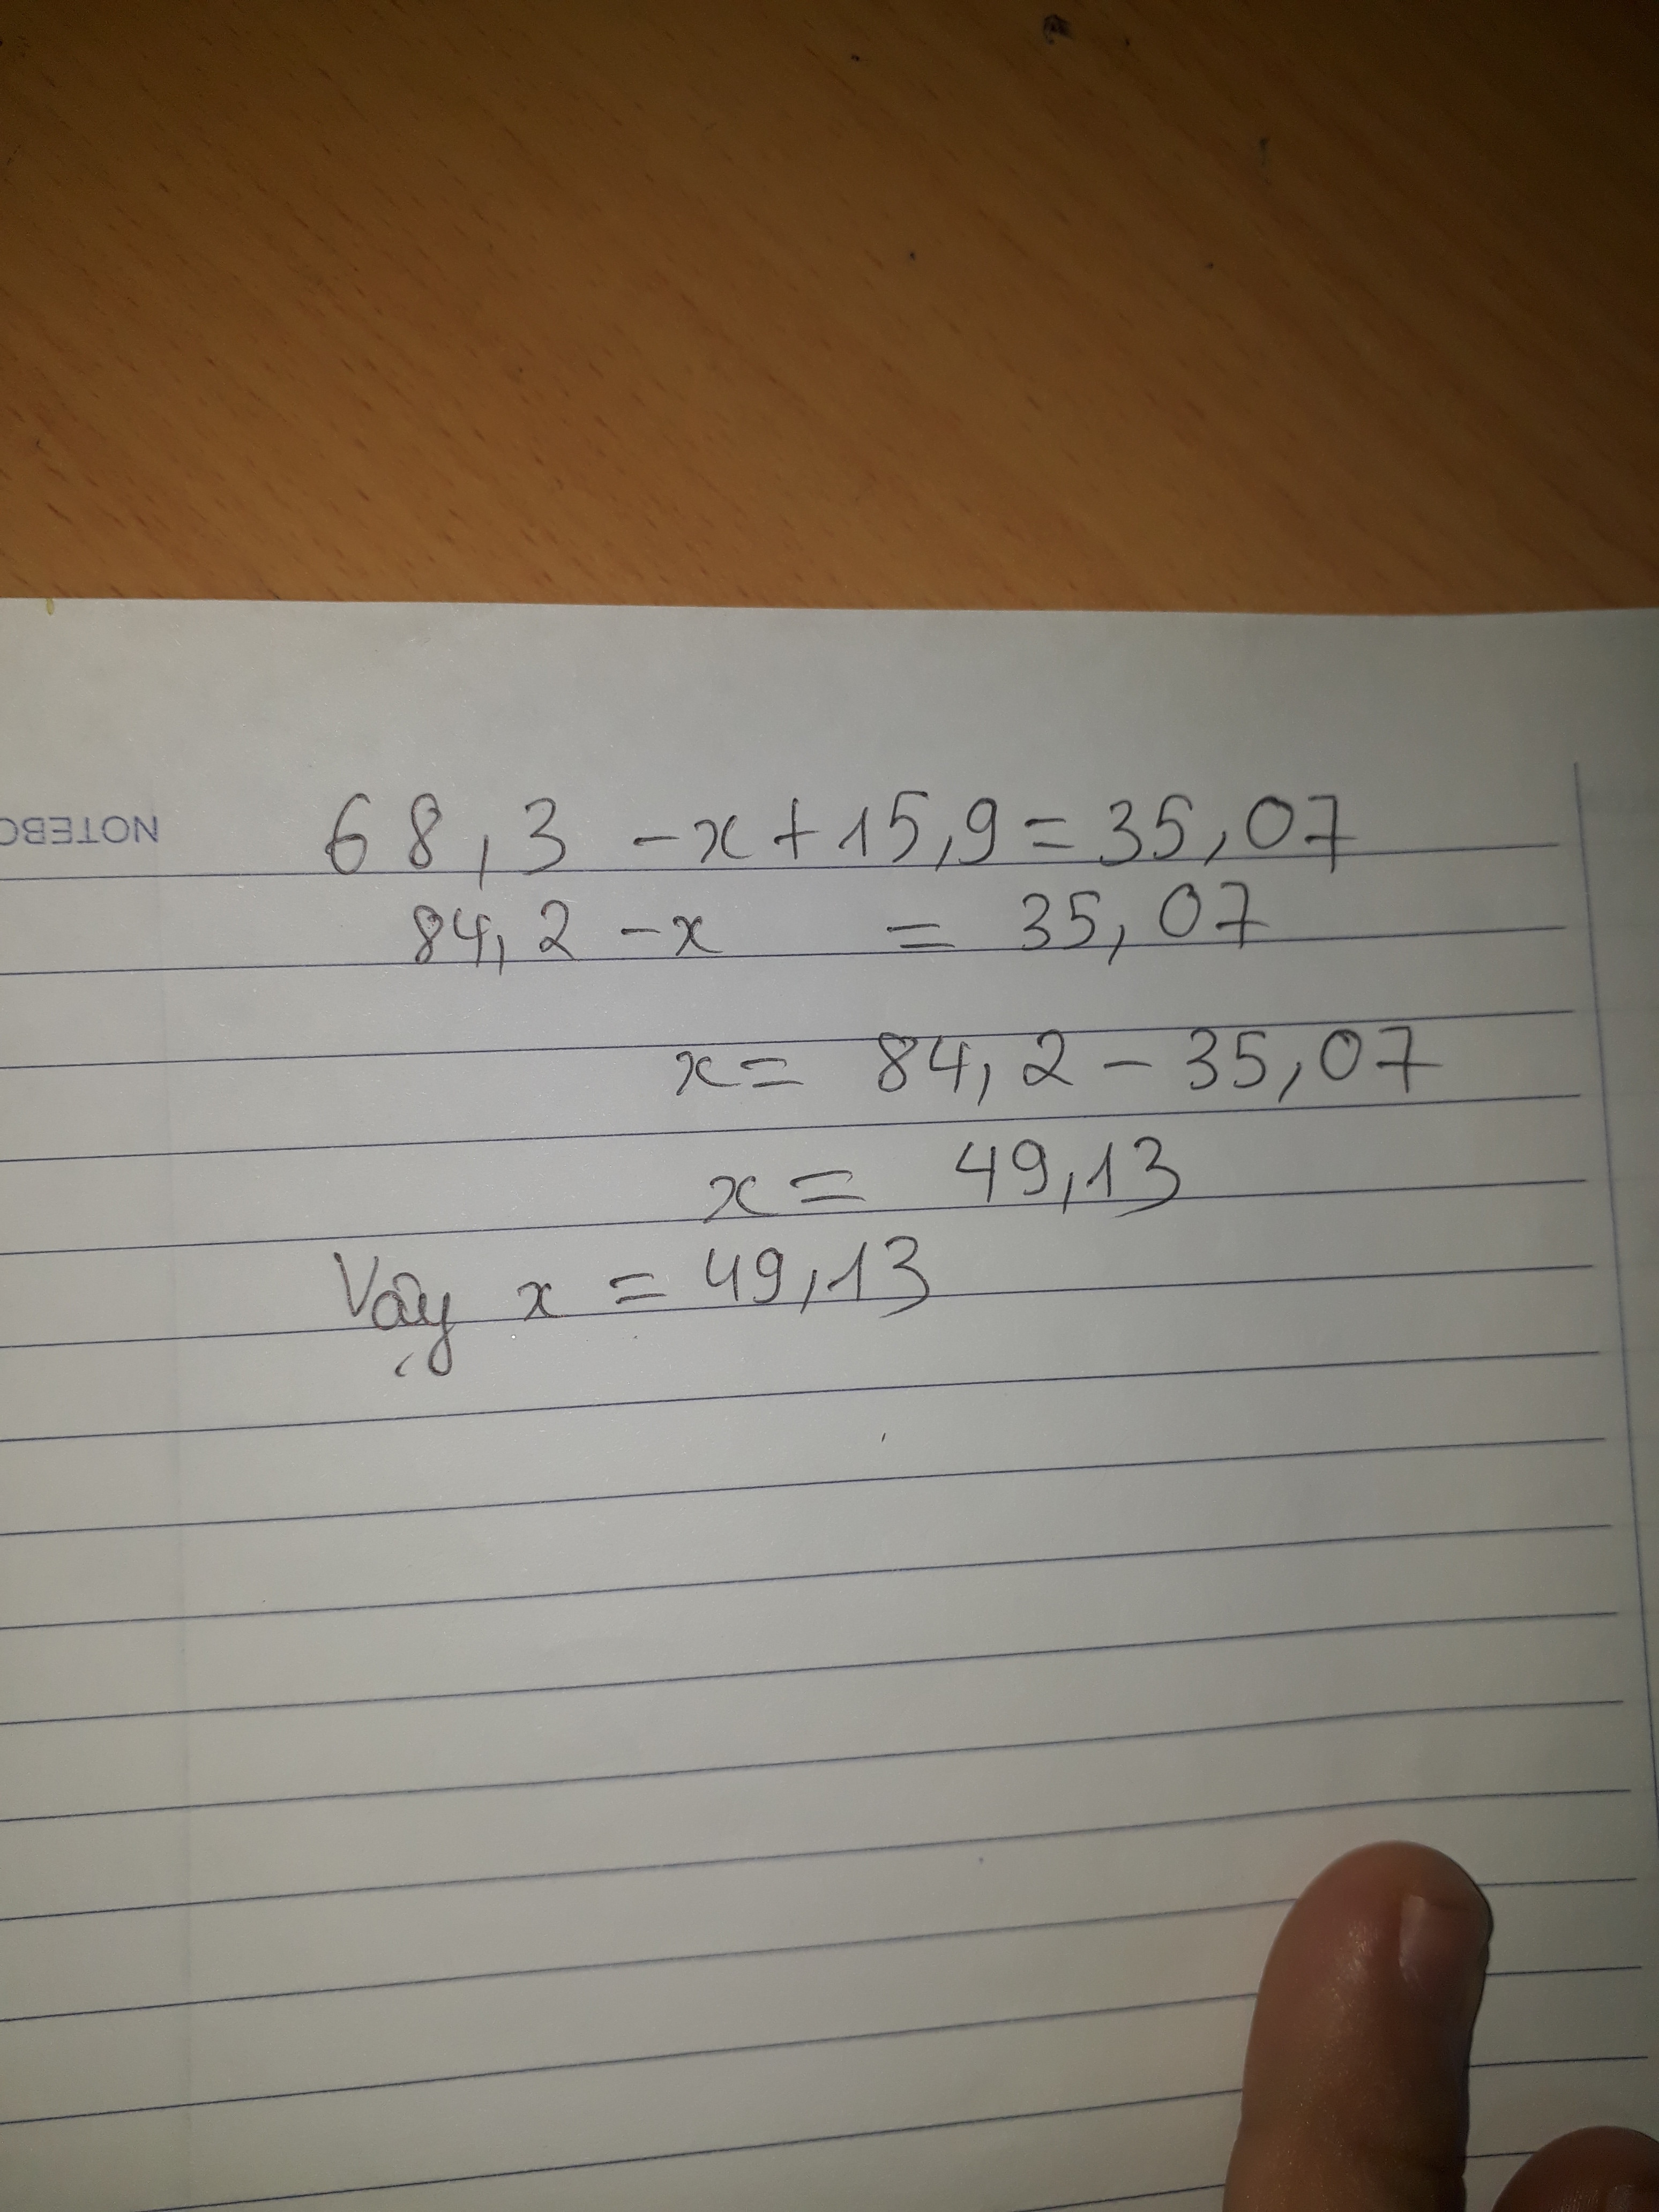 NOTEBO
68,3 -x+15,9=35,07
84,2 -x = 35,07
x= 84,2-35,07
x= 49,13
Vậy x = 49,13